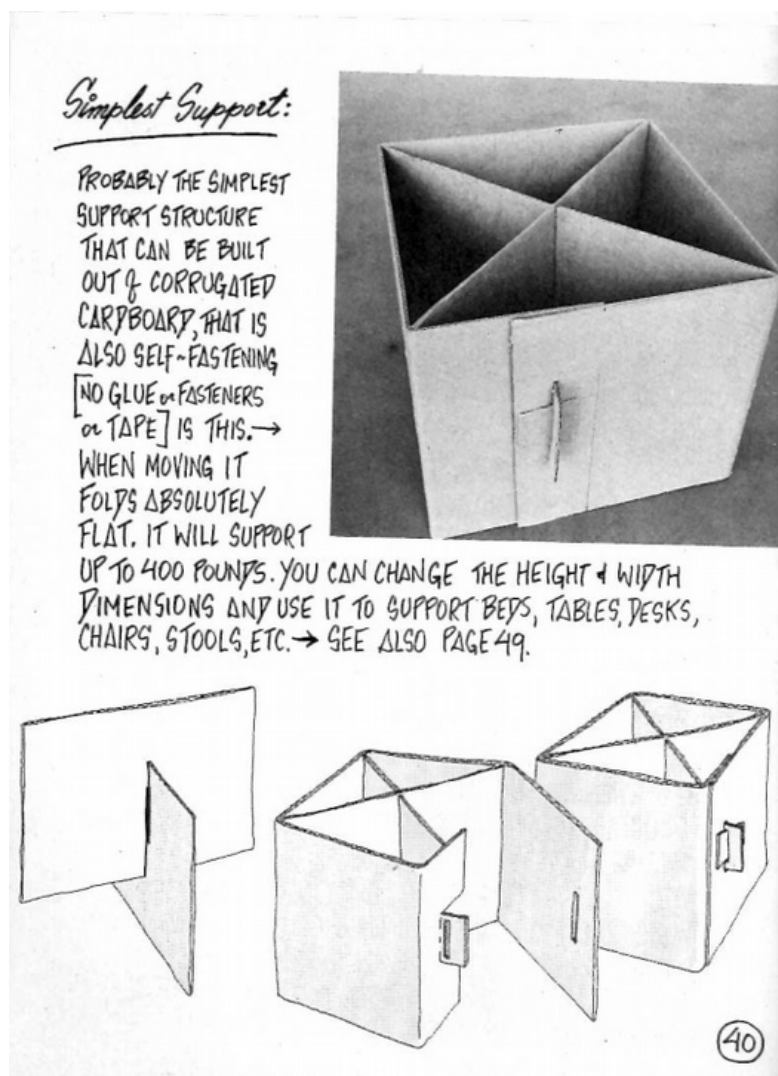 Simplest Support:
PROBABLY THE SIMPLEST
SUPPORT STRUCTURE
THAT CAN BE BUILT
OUT of CORRUGATED
CARDBOARD, THAT IS
ALSO SELF-FASTENING
[NO GLUE or FASTENERS
or TAPE] IS THIS.→
WHEN MOVING IT
FOLDS ABSOLUTELY
FLAT. IT WILL SUPPORT
UP TO 400 POUNDS. YOU CAN CHANGE THE HEIGHT & WIDTH
DIMENSIONS AND USE IT TO SUPPORT BEDS, TABLES, DESKS,
CHAIRS, STOOLS, ETC.→ SEE ALSO PAGE 49.
40